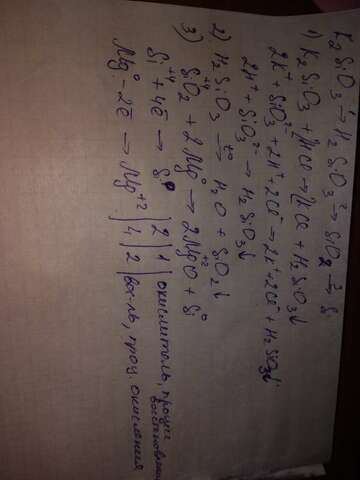 K₂SiO₃ →¹ H₂SiO₃ →² SiO₂ →³ Si
1) K₂SiO₃ + 2HCl → 2KCl + H₂SiO₃↓
2K⁺ + SiO₃²⁻ + 2H⁺ + 2Cl⁻ → 2K⁺ + 2Cl⁻ + H₂SiO₃↓
2H⁺ + SiO₃²⁻ → H₂SiO₃↓
2) H₂SiO₃ →t° H₂O + SiO₂↓
3) Si⁺⁴O₂ + 2Mg⁰ → 2Mg⁺²O + Si⁰
Si⁺⁴ + 4ē → Si⁰ | 2 | 1 | окислитель, процесс восстановления
Mg⁰ - 2ē → Mg⁺² | 4 | 2 | вос-ль, проц. окисления